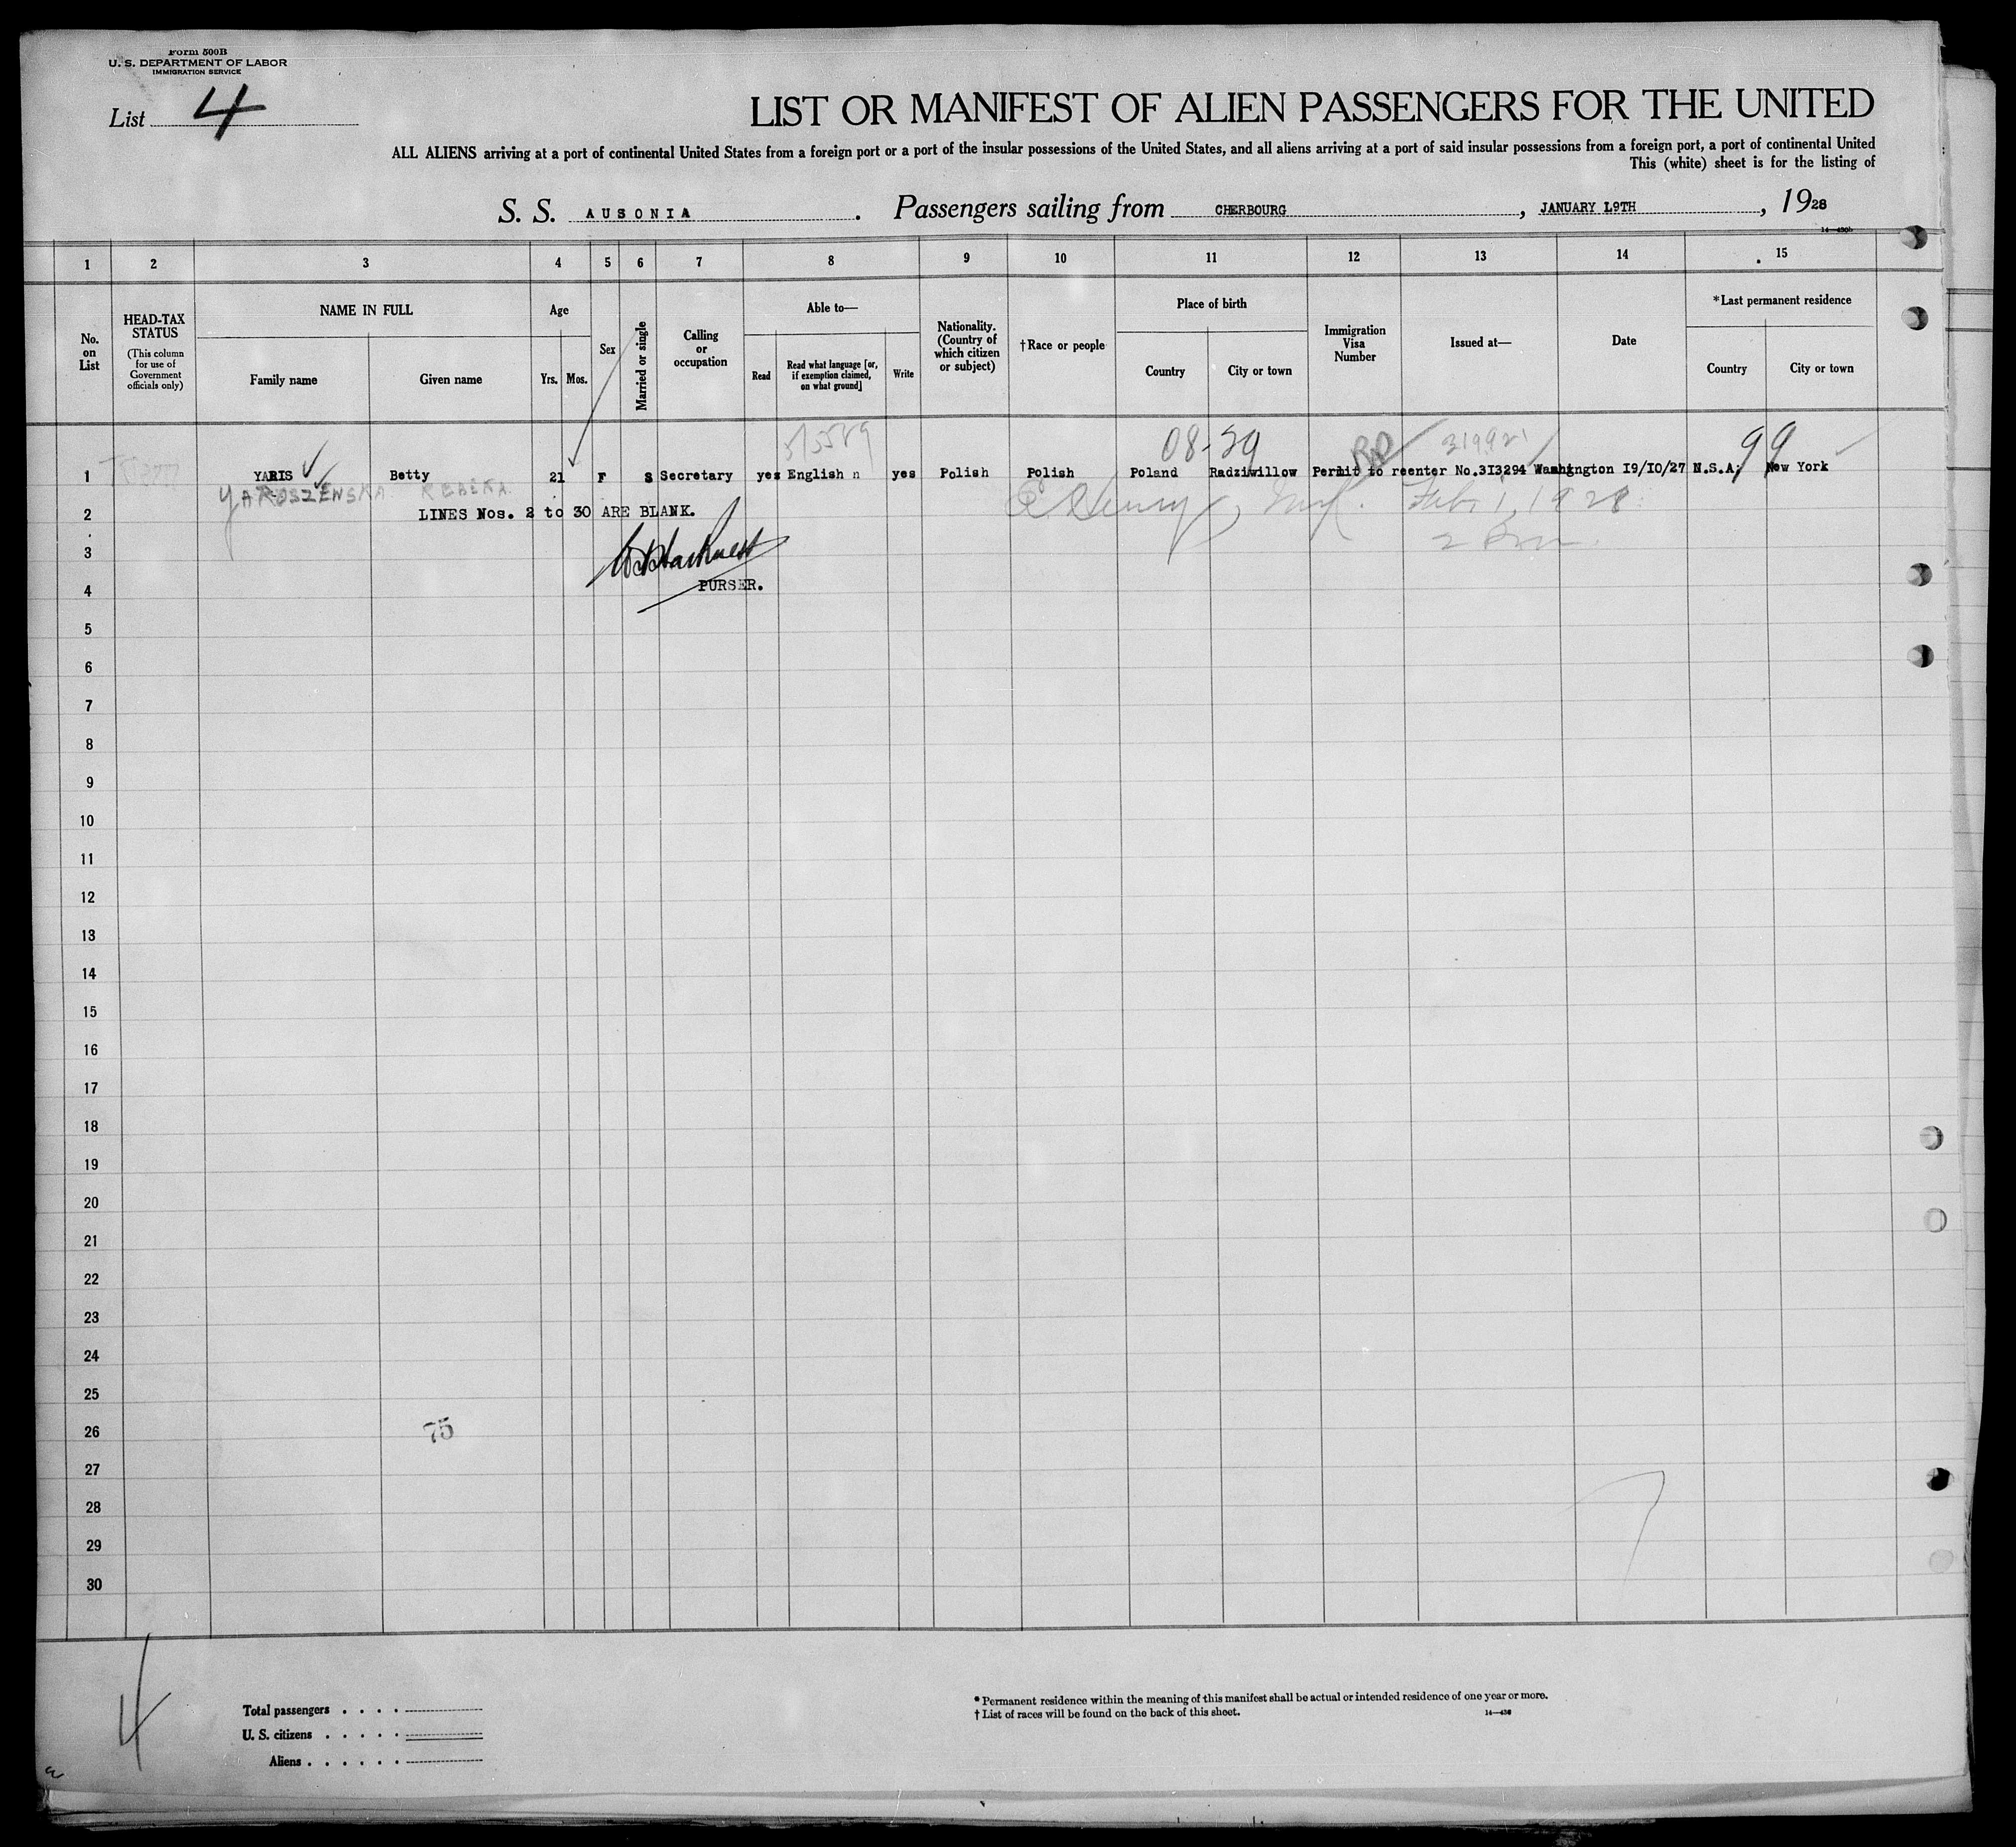 Form 500B
U. S. DEPARTMENT OF LABOR
IMMIGRATION SERVICE
List 4
LIST OR MANIFEST OF ALIEN PASSENGERS FOR THE UNITED
ALL ALIENS arriving at a port of continental United States from a foreign port or a port of the insular possessions of the United States, and all aliens arriving at a port of said insular possessions from a foreign port, a port of continental United
This (white) sheet is for the listing of
S. S. AUSONIA. Passengers sailing from CHERBOURG, JANUARY L9TH, 1928
14—430b
1 2 3 4 5 6 7 8 9 10 11 12 13 14 15
No. on List
HEAD-TAX STATUS
(This column for use of Government officials only)
NAME IN FULL
Family name Given name
Age
Yrs. Mos.
Sex
Married or single
Calling or occupation
Able to—
Read
Read what language [or, if exemption claimed, on what ground]
Write
Nationality. (Country of which citizen or subject)
†Race or people
Place of birth
Country City or town
Immigration Visa Number
Issued at—
Date
*Last permanent residence
Country City or town
08-29 RP 319921 99
1 YARIS Betty 21 F S Secretary yes English n yes Polish Polish Poland Radziwillow Permit to reenter No.3I3294 Washington I9/IO/27 N.S.A; New York
YAROSZENSKA REBEKA
Feb. 1, 1928
2 LINES Nos. 2 to 30 ARE BLANK.
3
PURSER.
4
5
6
7
8
9
10
11
12
13
14
15
16
17
18
19
20
21
22
23
24
25
26
75
27
28
29
30
4
Total passengers . . . .
U. S. citizens . . . . .
Aliens . . . . . .
* Permanent residence within the meaning of this manifest shall be actual or intended residence of one year or more.
† List of races will be found on the back of this sheet.
14—430